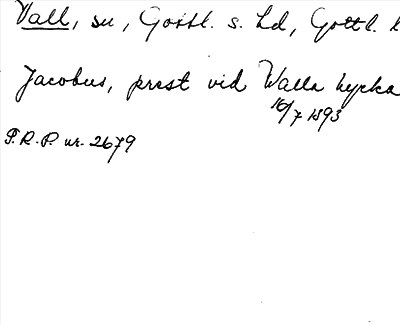 Vall, sn, Gottl. s. hd, Gottl. l
Jacobus, prest vid Walla kyrka
16/7 1393
S.R.P. nr. 2679